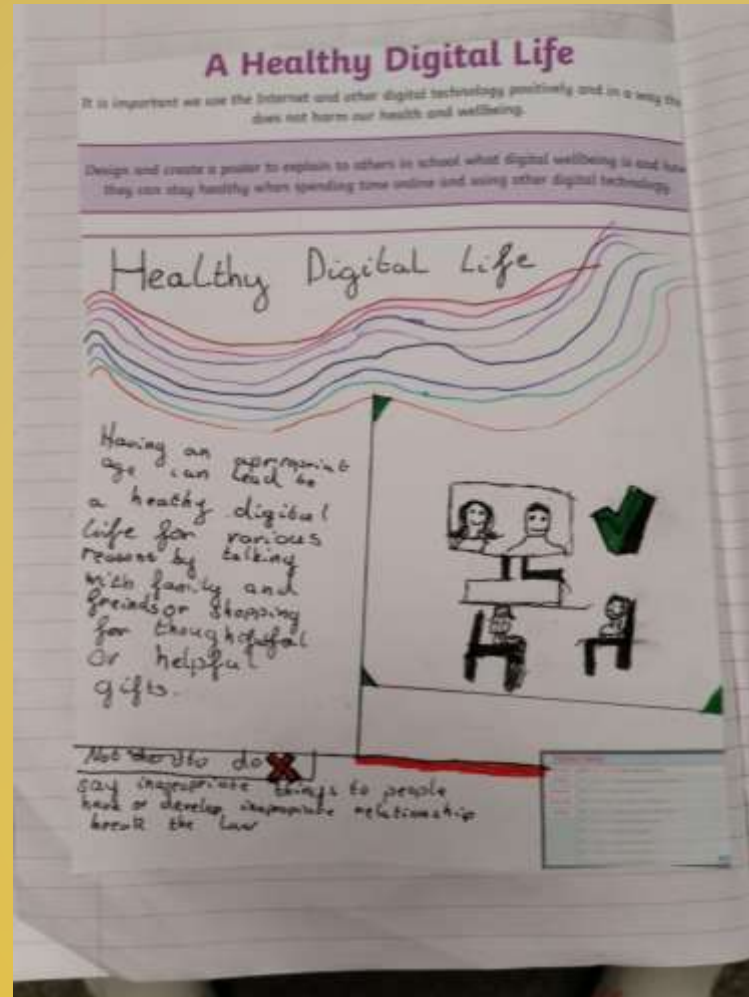 A Healthy Digital Life
It is important we use the Internet and other digital technology positively and in a way th
does not harm our health and wellbeing.
Design and create a poster to explain to others in school what digital wellbeing is and how
they can stay healthy when spending time online and using other digital technology.
Healthy Digital Life
Having an
age can lead to
a heathy digital
life for various
reasons by talking
with family and
freinds or shopping
for
or helpful
gifts.
Not to do
say things to people
have or develop relationship
break the law